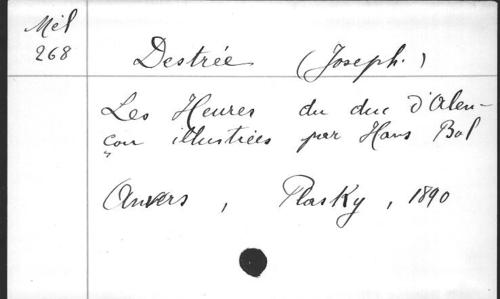 Mél
268
Destrée (Joseph.)
Les Heures du duc d'Alen-
çon illustrées par Hans Bol
Anvers, Plasky, 1890